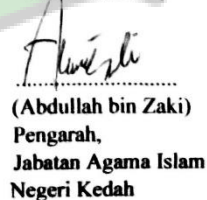 (Abdullah bin Zaki)
Pengarah,
Jabatan Agama Islam
Negeri Kedah